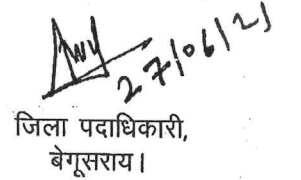 27/06/21
जिला पदाधिकारी,
बेगूसराय।